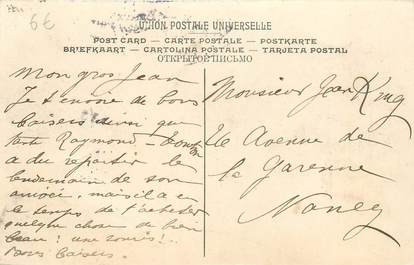 6€
UNION POSTALE UNIVERSELLE
POST CARD — CARTE POSTALE — POSTKARTE
BRIEFKAART — CARTOLINA POSTALE — TARJETA POSTAL
ОТКРЫТОЕ ПИСЬМО
Mon gros Jean
Je t'envoie de bons
baisers ainsi que
Raymond — tonton
a du repartir le
lendemain de son
arrivée, mais il a eu
le temps de t'acheter
quelque chose de bien
beau: une souris!..
Bons baisers.
Monsieur Jean Krug
26 Avenue de
la Garenne
Nancy